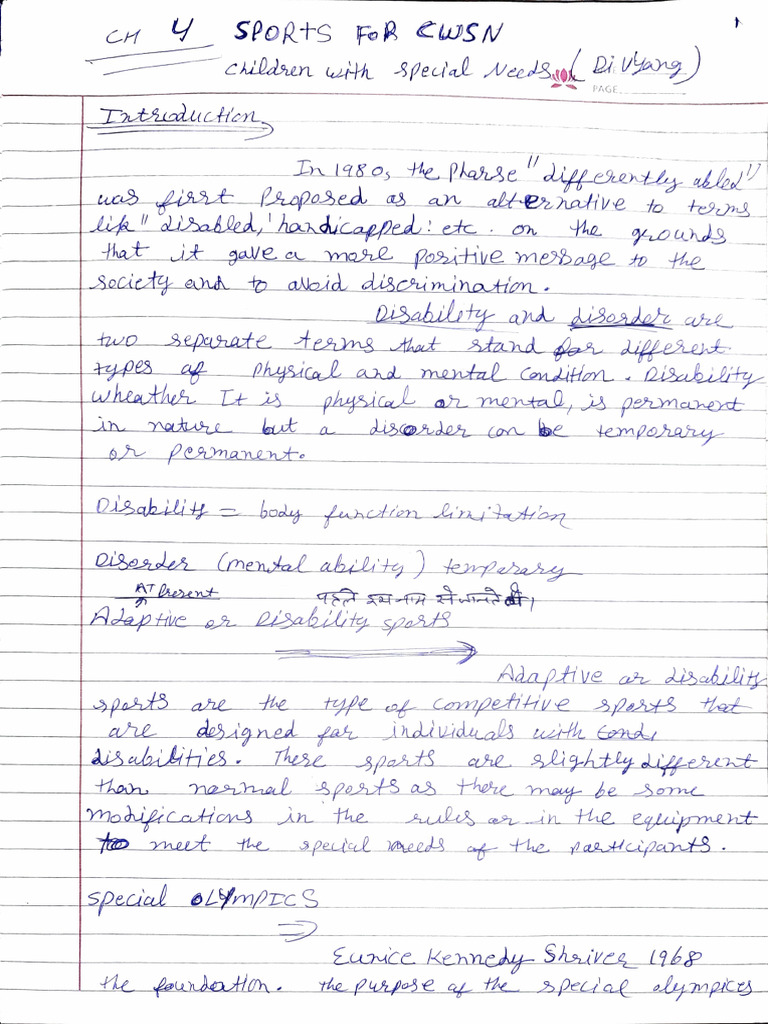 1
CH 4 SPORTS FOR CWSN
children with special Needs (DiVyang)
PAGE
Introduction
In 1980, the Pharse "differently abled"
was first Proposed as an alternative to terms
lik "disabled,' handicapped: etc. on the grounds
that it gave a more positive message to the
society and to avoid discrimination.
Disability and disorder are
two separate terms that stand for different
types of physical and mental condition. Disability
wheather It is physical or mental, is permanent
in nature but a disorder can be temporary
or permanent.
Disability = body function limitation
Disorder (mental ability) temporary
AT Present पहले इस नाम से जानते थे।
Adaptive or Disability sports
Adaptive or disability
sports are the type of competitive sports that
are designed for individuals with
disabilities. These sports are slightly different
than normal sports as there may be some
modifications in the rules or in the equipment
to meet the special needs of the participants.
special OLYMPICS
Eunice Kennedy Shriver 1968
the foundation. the purpose of the special olympices